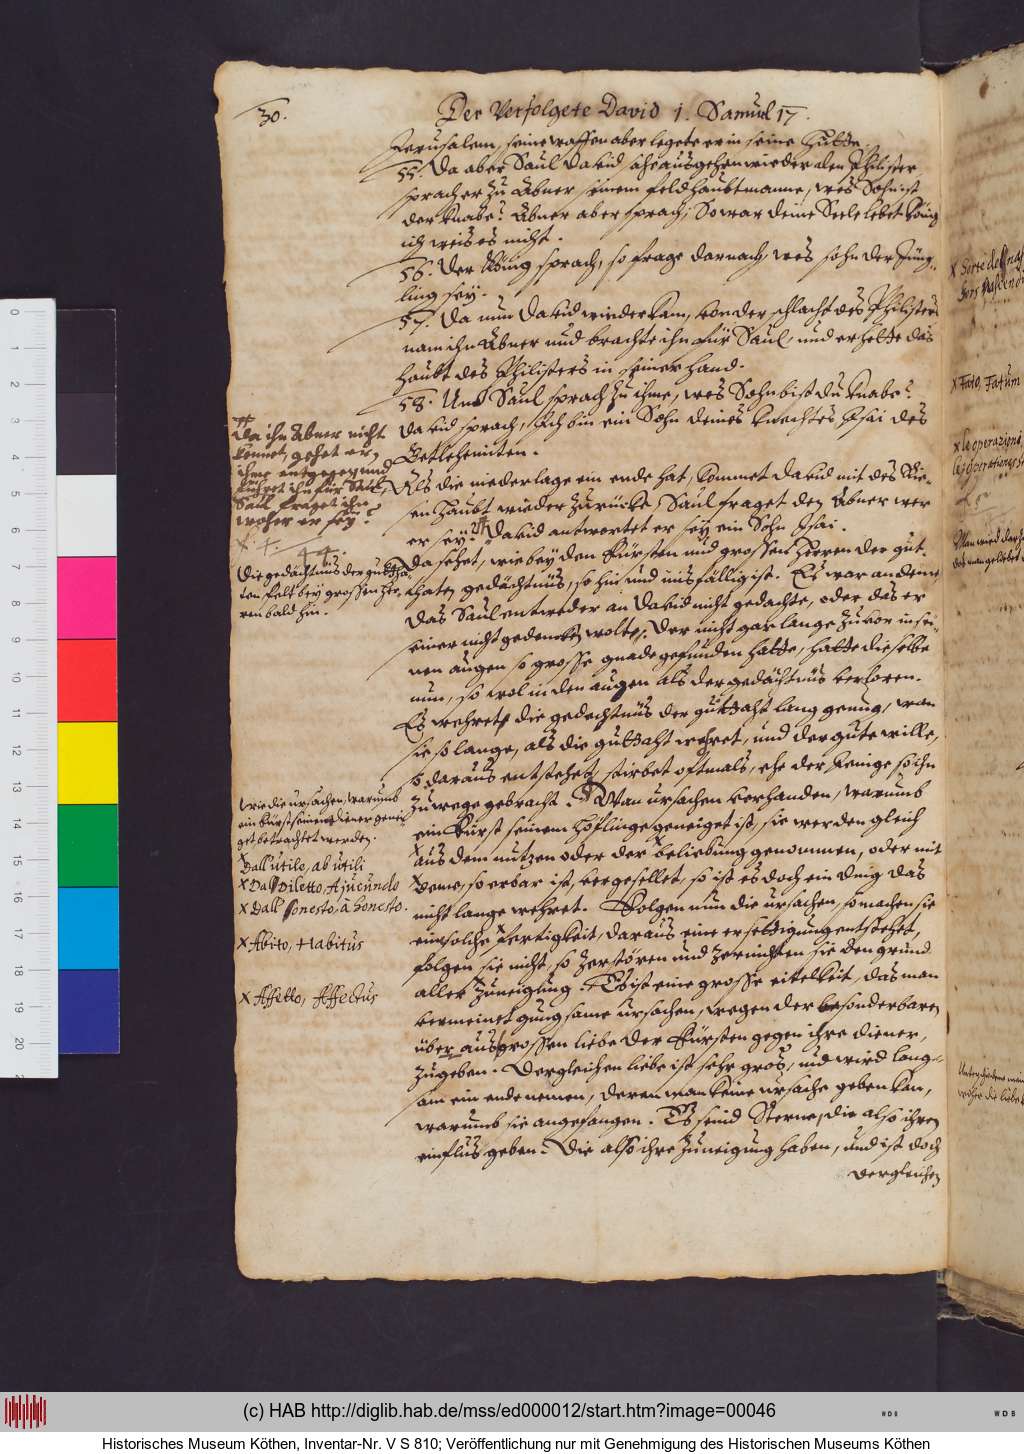 30.
Der Verfolgete David 1. Samuel 17.
Jerusalem, seine waffen aber legete er in seine Hütte.
55. Da aber Saul David sahe ausgehen wieder den Philister,
sprach er zu Abner seinem feldhaubtmanne, wes Sohn ist
der knabe? Abner aber sprach, So war deine Seele lebet König
ich weis es nicht.
56. Der König sprach, so frage darnach, wes sohn der Jüng-
ling sey.
57. Da nun David wieder kam, von der schlacht des Philisters
nam ihn Abner und brachte ihn für Saul, und er hatte das
haubt des Philisters in seiner hand.
58. Und Saul sprach zu ihme, wes Sohn bist du knabe?
David sprach, Ich bin ein Sohn deines knechtes Isai des
Betlehemiten.
Als die niederlage ein ende hat, kommet David mit des Rie-
sen haubt wieder zurücke, Saul fraget den Abner wer
er sey? David antwortet er sey ein Sohn Isai.
Da sehet, wie bey den Fürsten und grossen Herren der gut-
thaten gedächtnüs, so hin und misfällig ist. Es war an deme
das Saul entweder an David nicht gedachte, oder das er
seiner nicht gedencken wolte. Der nicht gar lange zuvor in sei-
nen augen so grosse gnade gefunden hatte, hatte dieselbe
nun, so wol in den augen als der gedächtnüs verloren.
Es wehret die gedechtnüs der gutthat lang genung, wan
sie so lange, als die gutthat wehret, und der gute wille,
so daraus entstehet, stirbet oftmals, ehe der jenige so ihn
zuwege gebracht. Wan ursachen vorhanden, warumb
ein Fürst seinem höflinge geneiget ist, sie werden gleich
aus dem nutzen oder der beliebung genommen, oder mit
deme, so erbar ist, vergesellet, so ist es doch ein ding das
nicht lange wehret. Folgen nun die ursachen, so machen sie
ein solche fertigkeit, daraus eine ersettigung entstehet,
folgen sie nicht, so zerstören und zernichten sie den grund
aller zuneigung. Es ist eine grosse eitelkeit, das man
vermeinet gungsame ursachen, wegen der besonderbaren
über aus grossen liebe der Fürsten gegen ihre diener,
zugeben. Dergleichen liebe ist sehr gros, und wird lang-
sam ein ende nemen, deren man keine ursache geben kan,
warumb sie angefangen. Es seind Sterne, die also ihren
einflus geben. Die also ihre zuneigung haben, und ist doch
dergleichen
Da ihn Abner nicht
kennet, gehet er
ihme entgegen und
führet ihn für Saul,
Saul fraget ihn
woher er sey?
44.
Die gedächtnüs der guttha-
ten, felt bey grossen Her-
ren bald hin.
Wie die ursachen, warumb
ein Fürst seinem diener genei-
get betrachtet werden.
x Dall'utile, ab utili
x Dal Diletto, A jucundo
x Dall'honesto, à honesto.
x Abito, Habitus
x Affetto, Affectus
x Fato, Fatum
x le operazioni,
(c) HAB http://diglib.hab.de/mss/ed000012/start.htm?image=00046
Historisches Museum Köthen, Inventar-Nr. V S 810; Veröffentlichung nur mit Genehmigung des Historischen Museums Köthen